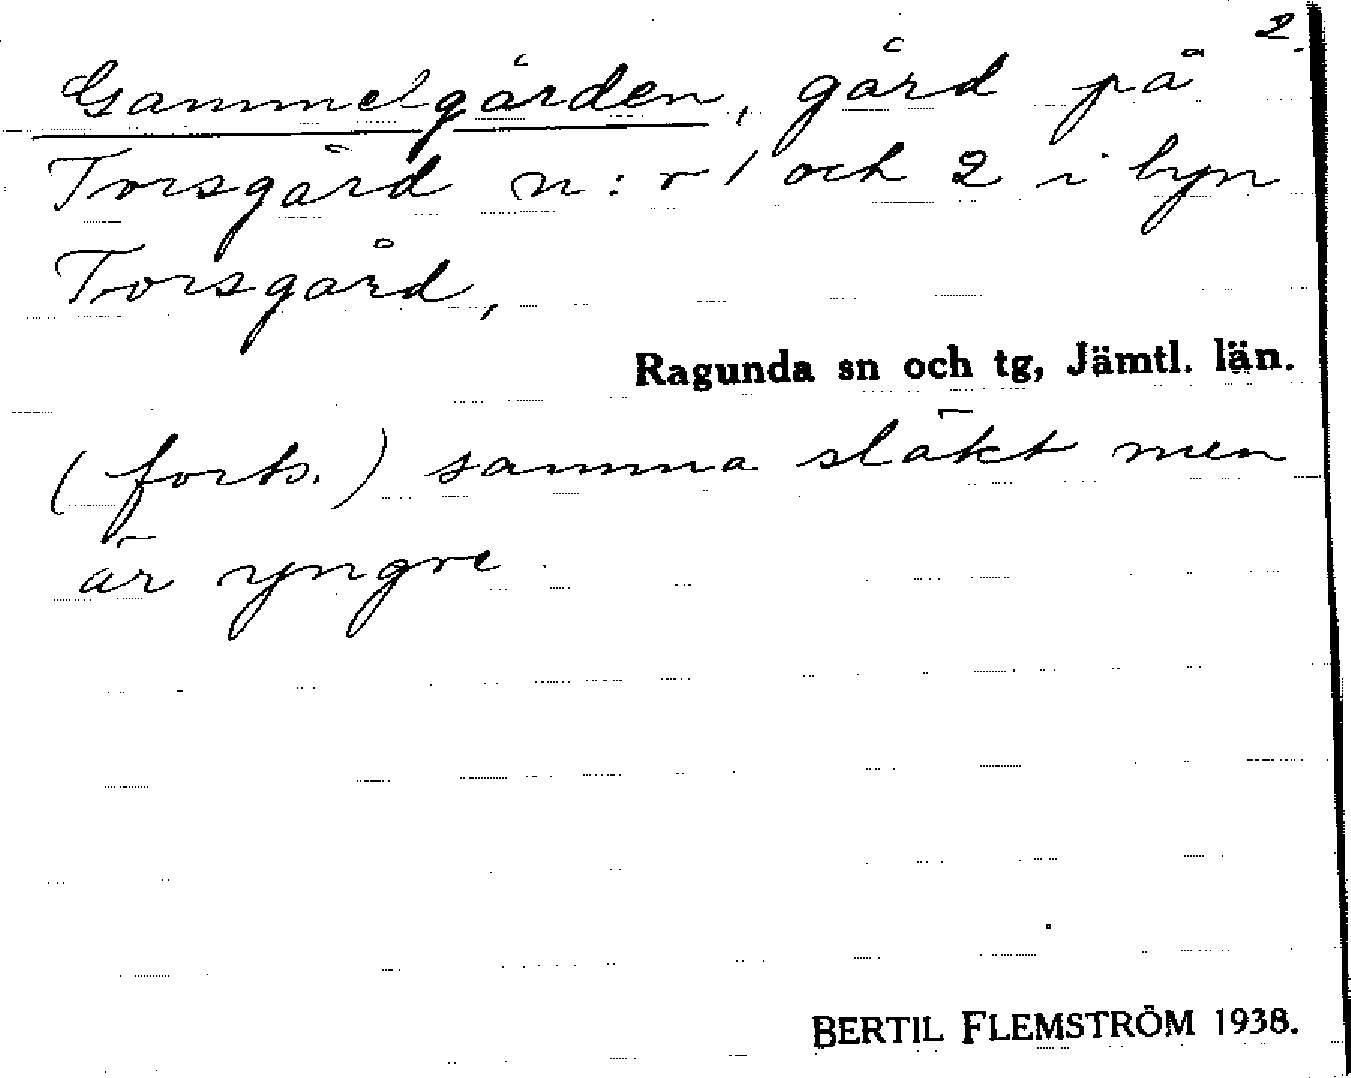 2.
Gammelgården, gård på
Torsgård n:r 1 och 2 i byn
Torsgård,
Ragunda sn och tg, Jämtl. län.
(forts.) samma släkt men
är yngre
BERTIL FLEMSTRÖM 1938.